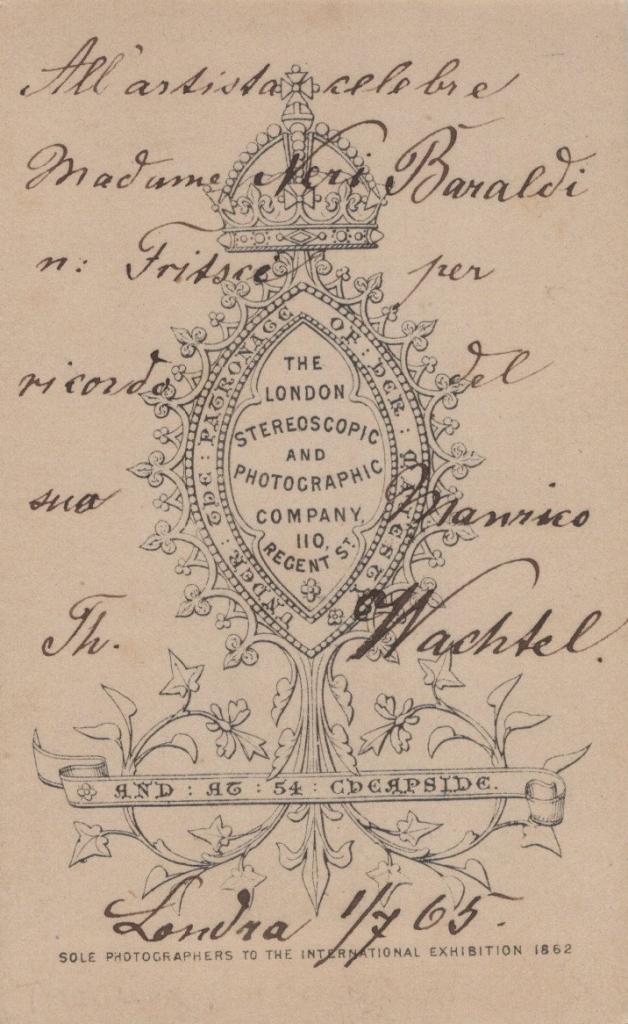 All'artista celebre
Madame Neri Baraldi
n: Fritsce per
ricordo del
suo Manrico
Th. Wachtel.
Londra 1/7 65.
UNDER : THE : PATRONAGE : OF : HER : MAJESTY
THE
LONDON
STEREOSCOPIC
AND
PHOTOGRAPHIC
COMPANY,
110,
REGENT ST.
AND : AT : 54 : CHEAPSIDE.
SOLE PHOTOGRAPHERS TO THE INTERNATIONAL EXHIBITION 1862